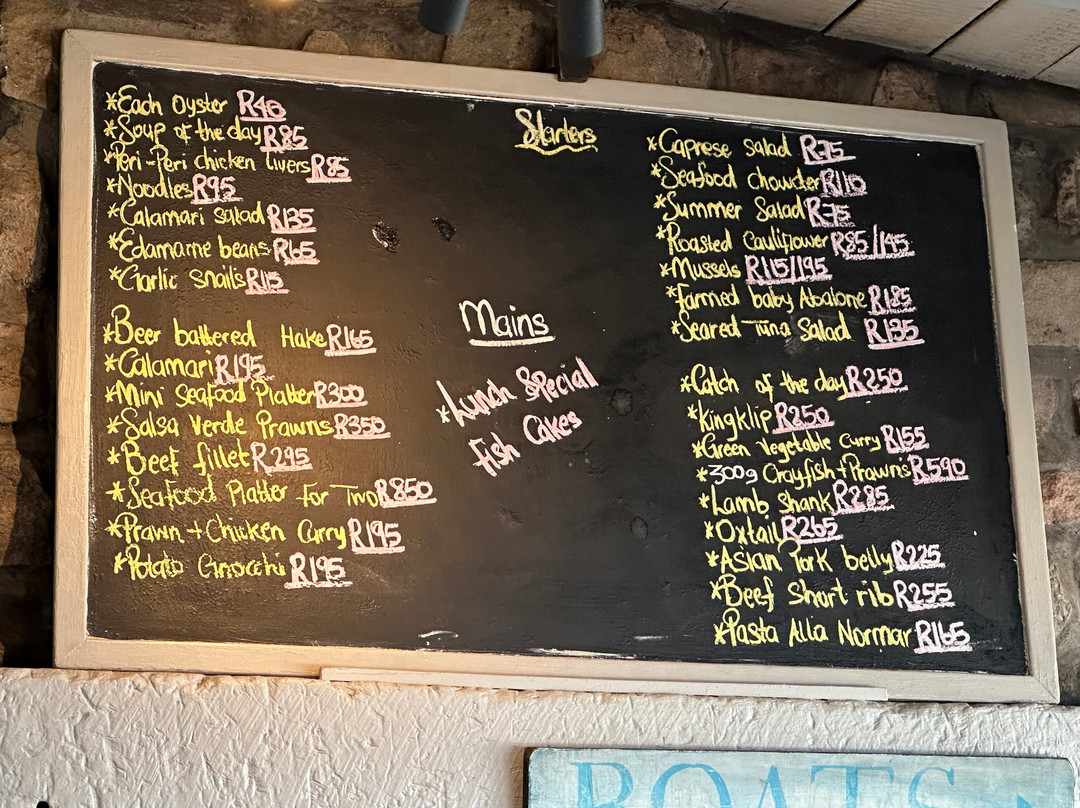 Starters
*Each Oyster R40
*Soup of the day R85
*Peri-Peri chicken livers R85
*Noodles R95
*Calamari salad R135
*Edamame beans R65
*Garlic Snails R115
*Caprese Salad R75
*Seafood Chowder R110
*Summer Salad R75
*Roasted Cauliflower R85/145
*Mussels R115/195
*Farmed baby Abalone R185
*Seared Tuna Salad R135
Mains
*Lunch Special
Fish Cakes
*Beer battered Hake R165
*Calamari R195
*Mini Seafood Platter R300
*Salsa Verde Prawns R350
*Beef fillet R295
*Seafood Platter for Two R850
*Prawn + Chicken Curry R195
*Potato Gnocchi R195
*Catch of the day R250
*Kingklip R250
*Green Vegetable Curry R155
*300g Crayfish + Prawns R590
*Lamb Shank R285
*Oxtail R265
*Asian Pork belly R225
*Beef Short rib R255
*Pasta Alla Normar R165
BOATS